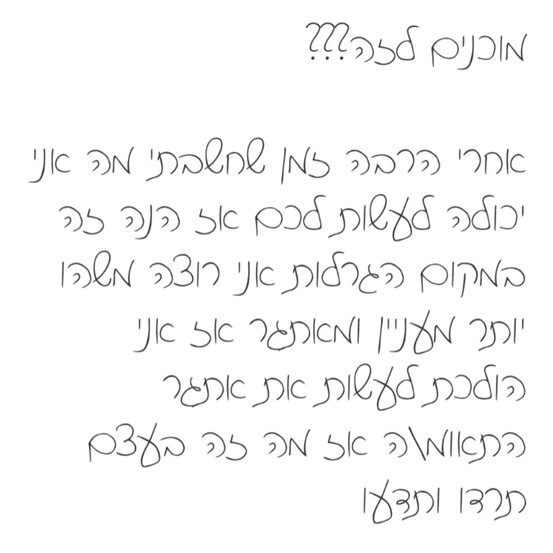 מוכנים לזה???
אחרי הרבה זמן שחשבתי מה אני
יכולה לעשות לכם אז הנה זה
במקום הגרלות אני רוצה משהו
יותר מעניין ומאתגר אז אני
הולכת לעשות את אתגר
התאומ\ה אז מה זה בעצם
תרדו ותדעו